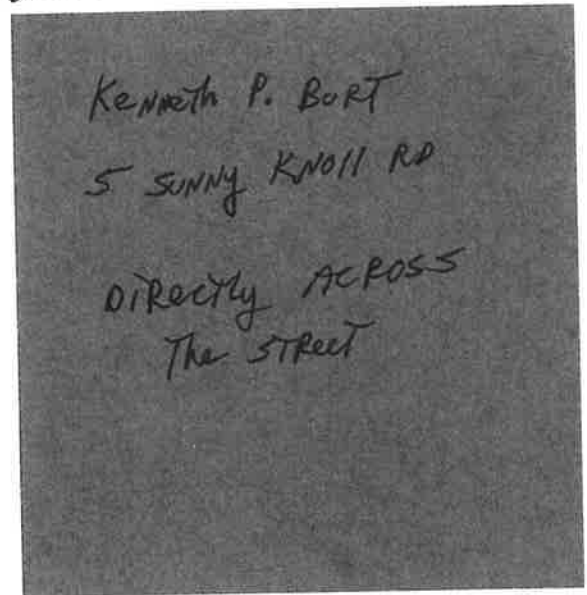 Kenneth P. Burt
5 Sunny Knoll RD
Directly Across
The Street